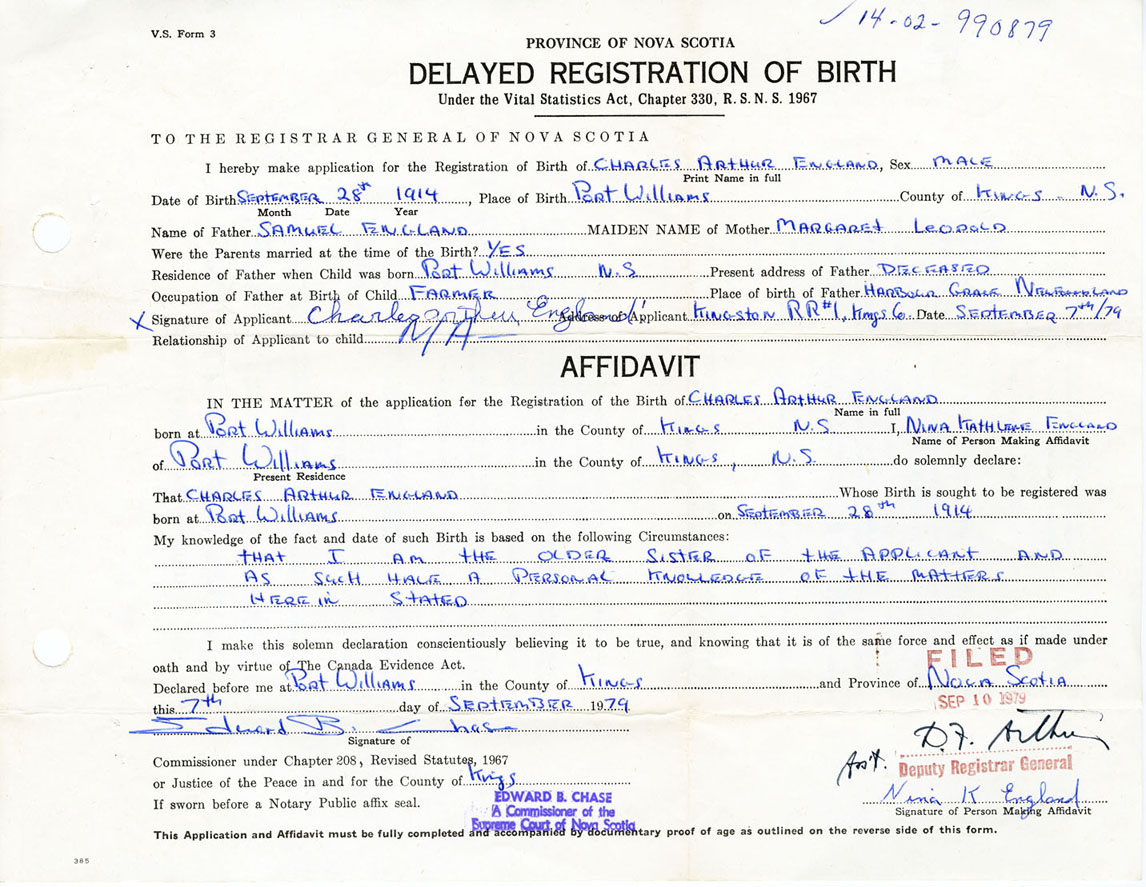 ✓ 14-02-990879
V.S. Form 3
PROVINCE OF NOVA SCOTIA
DELAYED REGISTRATION OF BIRTH
Under the Vital Statistics Act, Chapter 330, R. S. N. S. 1967
TO THE REGISTRAR GENERAL OF NOVA SCOTIA
I hereby make application for the Registration of Birth of CHARLES ARTHUR ENGLAND, Sex MALE
Print Name in full
Date of Birth SEPTEMBER 28th 1914, Place of Birth PORT WILLIAMS County of KINGS N.S.
Month Date Year
Name of Father SAMUEL ENGLAND MAIDEN NAME of Mother MARGARET LEOPOLD
Were the Parents married at the time of the Birth? YES
Residence of Father when Child was born PORT WILLIAMS N.S Present address of Father DECEASED
Occupation of Father at Birth of Child FARMER Place of birth of Father HARBOUR GRACE NEWFOUNDLAND
X Signature of Applicant Charles Arthur England Address of Applicant KINGSTON RR#1, Kings Co. Date SEPTEMBER 7th/79
Relationship of Applicant to child N/A
AFFIDAVIT
IN THE MATTER of the application for the Registration of the Birth of CHARLES ARTHUR ENGLAND
Name in full
born at PORT WILLIAMS in the County of KINGS N.S I, NINA KATHLENE ENGLAND
Name of Person Making Affidavit
of PORT WILLIAMS in the County of KINGS, N.S. do solemnly declare:
Present Residence
That CHARLES ARTHUR ENGLAND Whose Birth is sought to be registered was
born at PORT WILLIAMS on SEPTEMBER 28th 1914
My knowledge of the fact and date of such Birth is based on the following Circumstances:
THAT I AM THE OLDER SISTER OF THE APPLICANT AND
AS SUCH HAVE A PERSONAL KNOWLEDGE OF THE MATTERS
HERE IN STATED
I make this solemn declaration conscientiously believing it to be true, and knowing that it is of the same force and effect as if made under
oath and by virtue of The Canada Evidence Act.
FILED
Declared before me at PORT WILLIAMS in the County of KINGS and Province of NOVA SCOTIA
SEP 10 1979
this 7th day of SEPTEMBER 1979
Edward B. Chase
Signature of
D.F. Arthur
Commissioner under Chapter 208, Revised Statutes, 1967
Ass't. Deputy Registrar General
or Justice of the Peace in and for the County of Kings
If sworn before a Notary Public affix seal.
Nina K England
Signature of Person Making Affidavit
EDWARD B. CHASE
A Commissioner of the
Supreme Court of Nova Scotia
This Application and Affidavit must be fully completed and accompanied by documentary proof of age as outlined on the reverse side of this form.
385